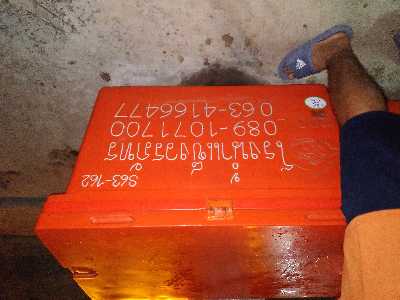 S63-162
โรงน้ำแข็งวรภัทร
089-1071700
063-4166477